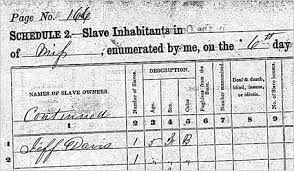 Page No. 166
SCHEDULE 2.—Slave Inhabitants in
of Miss, enumerated by me, on the 6th day
NAMES OF SLAVE OWNERS.
Number of Slaves.
DESCRIPTION.
Age.
Sex.
Color.
Fugitives from the State.
Number manumitted.
Deaf & dumb, blind, insane, or idiotic.
NAMES OF SLAVE
Number of Slaves.
Age.
Sex.
1 2 3 4 5 6 7 8 9 1
Continued
1 Jeff Davis 1 5 B
2 1